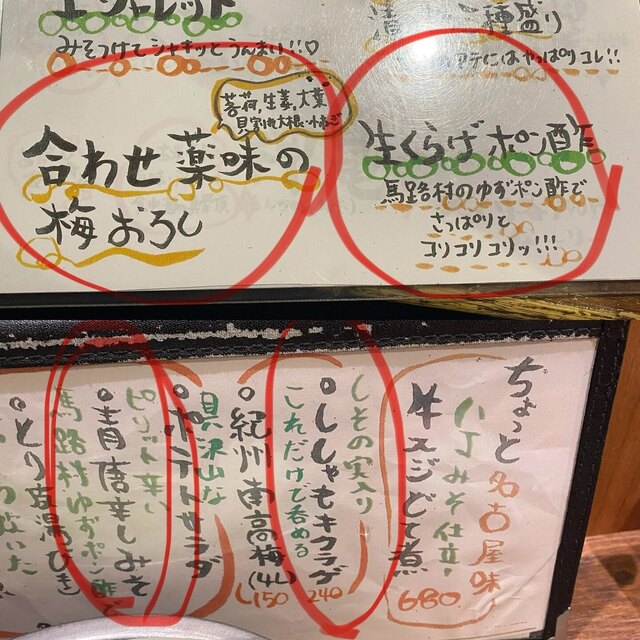 エシャレット
みそつけてシャキッとうんまい!!♡
種盛り
アテにはやっぱりコレ!!
茗荷,生姜,大葉
貝割れ大根・ねぎ
合わせ薬味の
梅おろし
生くらげポン酢
馬路村のゆずポン酢で
さっぱりと
コリコリコリッ!!!
ちょっと名古屋味!
八丁みそ仕立!
牛スジどて煮 680
しその実入り
ししゃもキクラゲ 240
これだけで呑める
紀州南高梅(4L) 150
具沢山な
ポテトサラダ
ピリッと辛い
青唐辛しみそ
馬路村ゆずポン酢で
とり皮湯びき